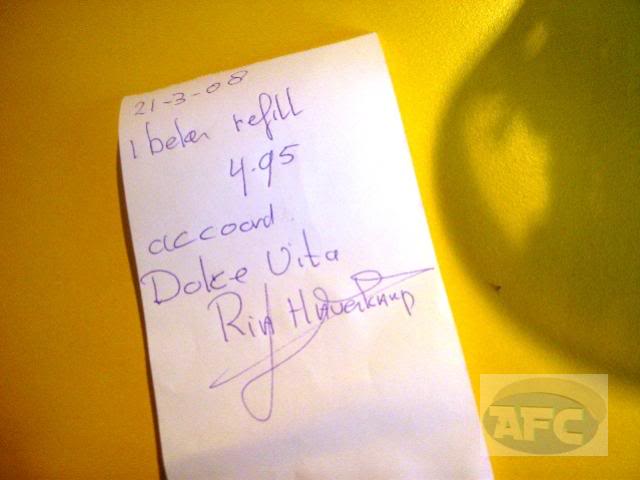 21-3-08
1 beker refill
4.95
accoord.
Dolce Vita
Rin
AFC